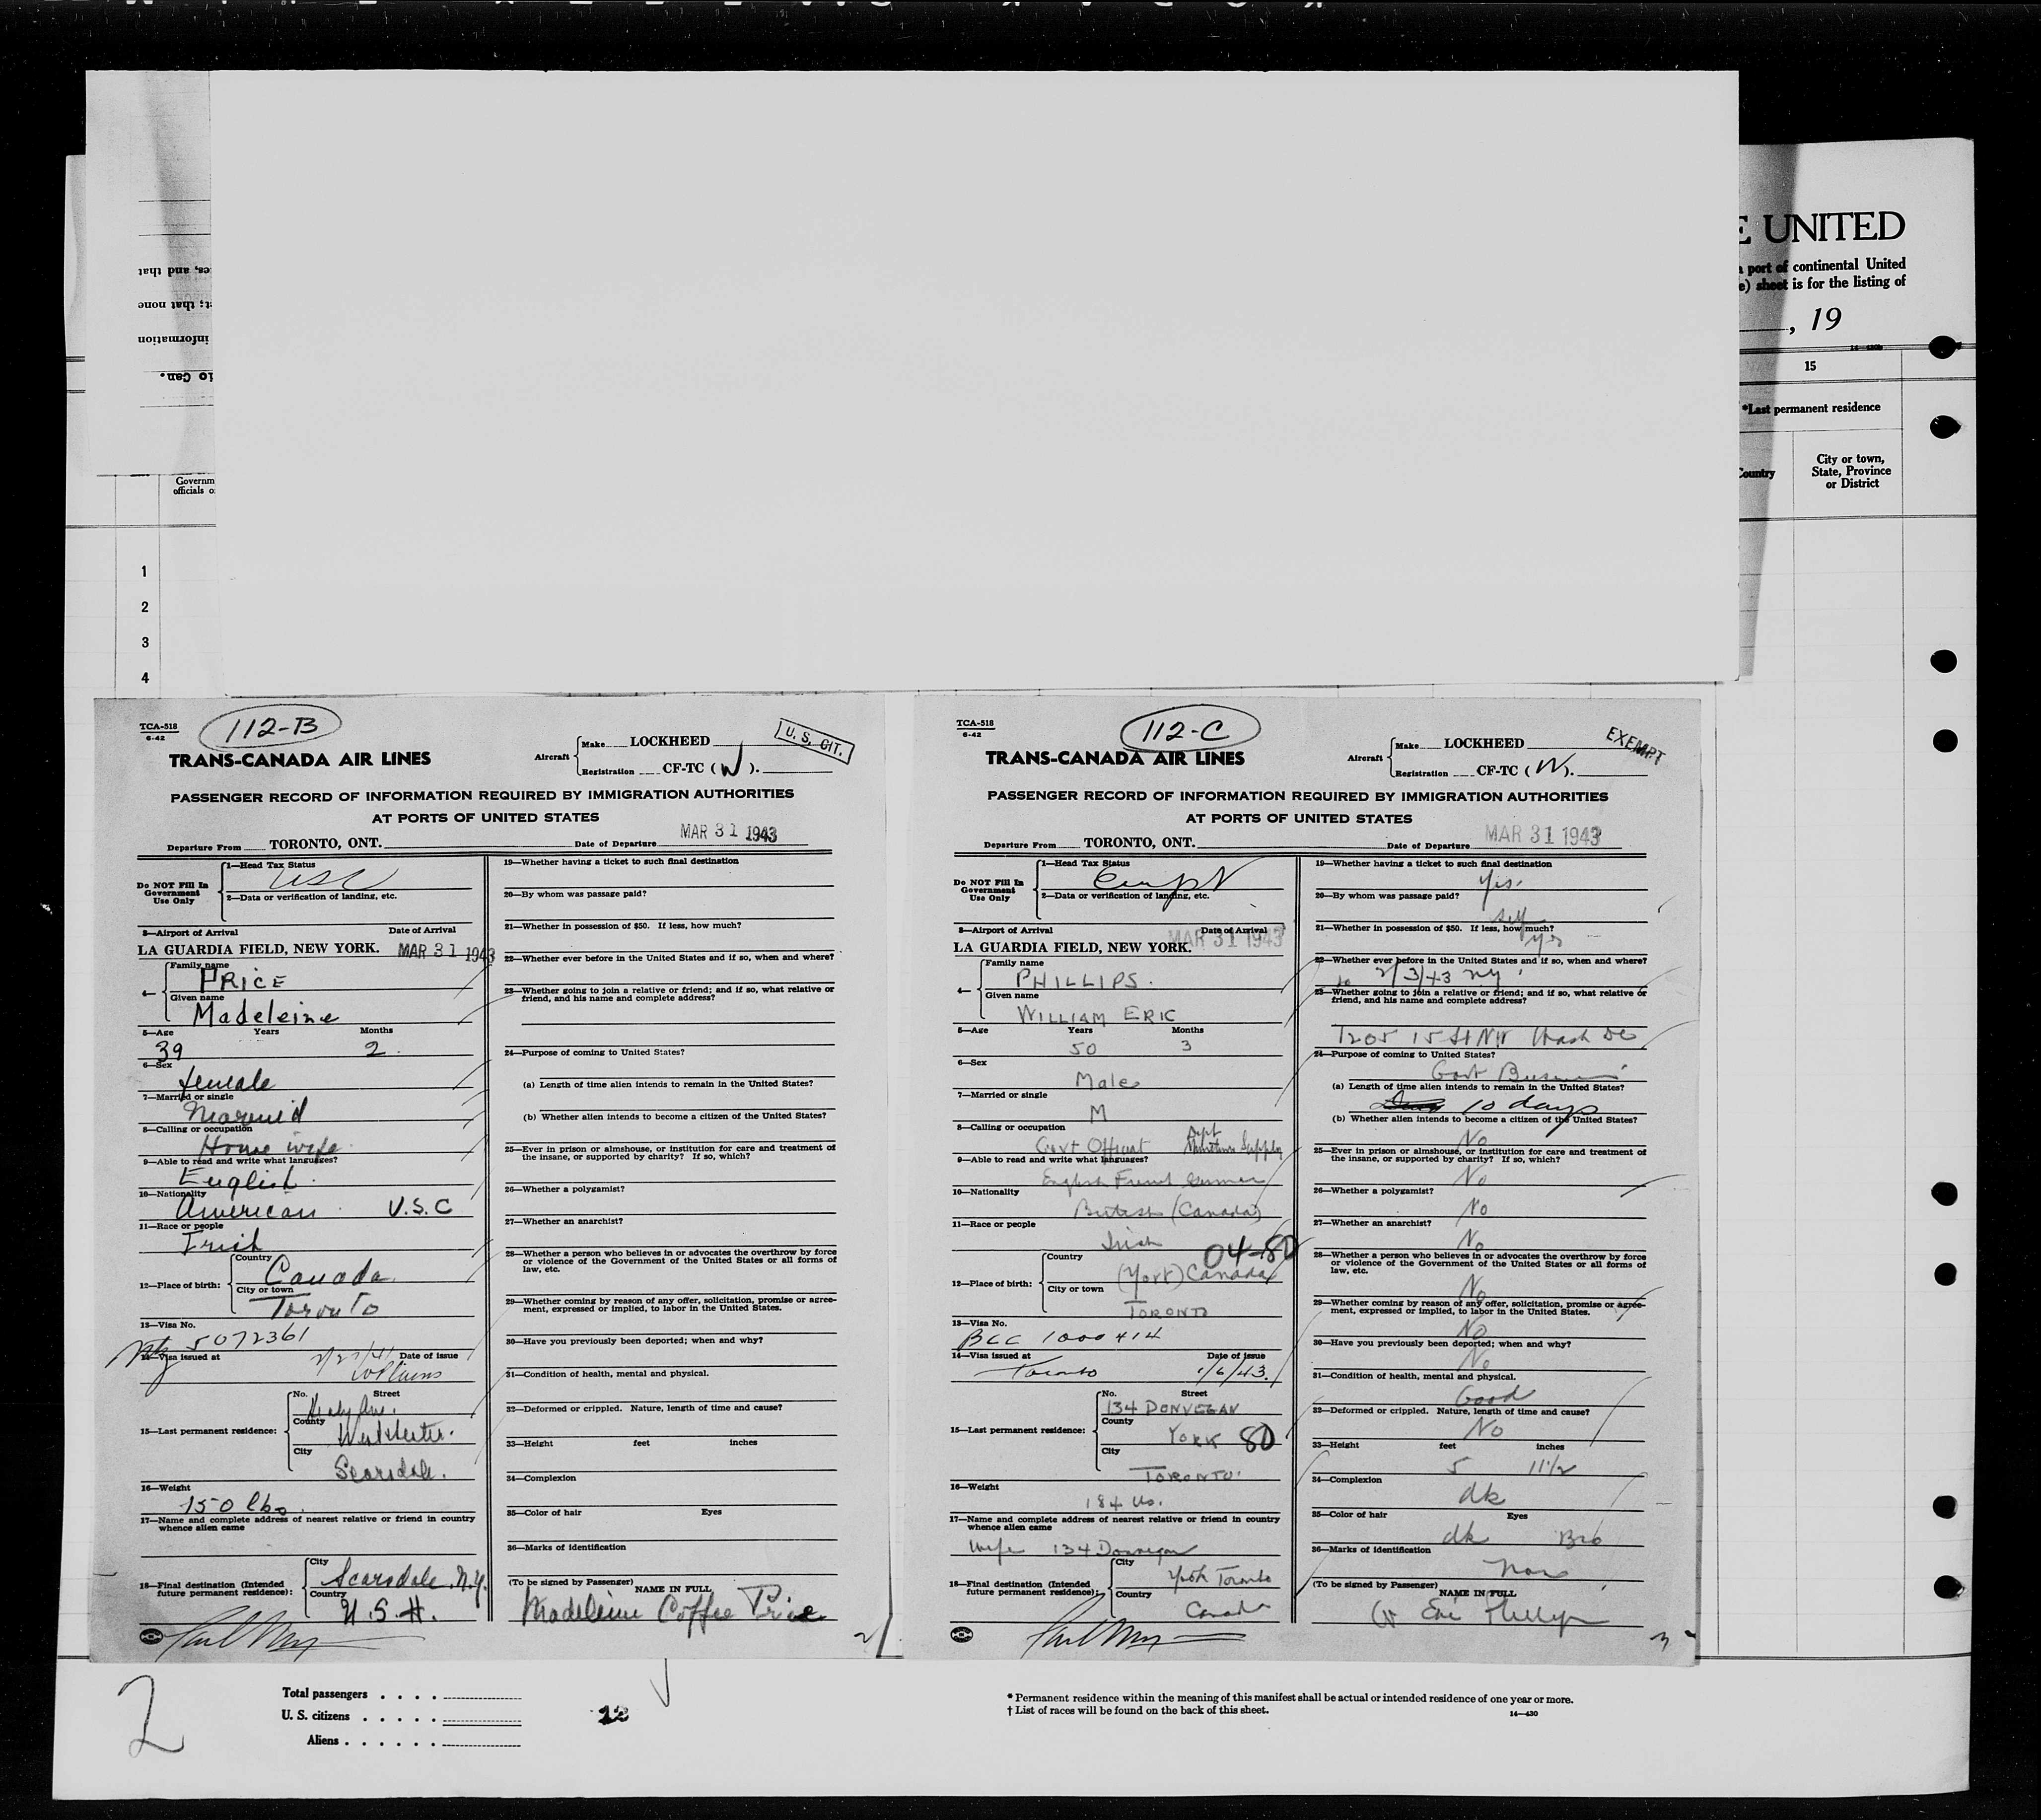 E UNITED
a port of continental United
e) sheet is for the listing of
, 19
15
*Last permanent residence
Country
City or town,
State, Province
or District
es, and that
t; that none
information
to Can.
Governm
officials o
1
2
3
4
TCA-518
6-42
112-B
TRANS-CANADA AIR LINES
Aircraft
Make LOCKHEED
Registration CF-TC (W).
U. S. CIT.
PASSENGER RECORD OF INFORMATION REQUIRED BY IMMIGRATION AUTHORITIES
AT PORTS OF UNITED STATES
Departure From TORONTO, ONT. Date of Departure MAR 31 1943
Do NOT Fill In
Government
Use Only
1—Head Tax Status
USC
2—Data or verification of landing, etc.
3—Airport of Arrival Date of Arrival
LA GUARDIA FIELD, NEW YORK. MAR 31 1943
4—
Family name
PRICE
Given name
Madeleine
5—Age Years Months
39 2
6—Sex
female
7—Married or single
Married
8—Calling or occupation
House wife
9—Able to read and write what languages?
English
10—Nationality
American U.S.C
11—Race or people
Irish
12—Place of birth:
Country
Canada
City or town
Toronto
13—Visa No.
5072361
14—Visa issued at Date of issue
15—Last permanent residence:
No. Street
Ave.
County
Westchester.
City
Scarsdale.
16—Weight
150 lbs.
17—Name and complete address of nearest relative or friend in country
whence alien came
18—Final destination (Intended
future permanent residence):
City
Scarsdale. N.Y.
Country
U.S.A.
19—Whether having a ticket to such final destination
20—By whom was passage paid?
21—Whether in possession of $50. If less, how much?
22—Whether ever before in the United States and if so, when and where?
23—Whether going to join a relative or friend; and if so, what relative or
friend, and his name and complete address?
24—Purpose of coming to United States?
(a) Length of time alien intends to remain in the United States?
(b) Whether alien intends to become a citizen of the United States?
25—Ever in prison or almshouse, or institution for care and treatment of
the insane, or supported by charity? If so, which?
26—Whether a polygamist?
27—Whether an anarchist?
28—Whether a person who believes in or advocates the overthrow by force
or violence of the Government of the United States or all forms of
law, etc.
29—Whether coming by reason of any offer, solicitation, promise or agree-
ment, expressed or implied, to labor in the United States.
30—Have you previously been deported; when and why?
31—Condition of health, mental and physical.
32—Deformed or crippled. Nature, length of time and cause?
33—Height feet inches
34—Complexion
35—Color of hair Eyes
36—Marks of identification
(To be signed by Passenger)
NAME IN FULL
Madeleine Coffee Price
2
TCA-518
6-42
112-C
TRANS-CANADA AIR LINES
Aircraft
Make LOCKHEED
Registration CF-TC (W).
EXEMPT
PASSENGER RECORD OF INFORMATION REQUIRED BY IMMIGRATION AUTHORITIES
AT PORTS OF UNITED STATES
Departure From TORONTO, ONT. Date of Departure MAR 31 1943
Do NOT Fill In
Government
Use Only
1—Head Tax Status
2—Data or verification of landing, etc.
3—Airport of Arrival Date of Arrival
LA GUARDIA FIELD, NEW YORK. MAR 31 1943
4—
Family name
PHILLIPS.
Given name
WILLIAM ERIC
5—Age Years Months
50 3
6—Sex
Male
7—Married or single
M
8—Calling or occupation
Govt Official Dept Munitions Supply
9—Able to read and write what languages?
English French German
10—Nationality
British (Canada)
11—Race or people
Irish
04-80
12—Place of birth:
Country
(York) Canada
City or town
TORONTO
13—Visa No.
BCC 1000414
14—Visa issued at Date of issue
Toronto 1/6/43.
15—Last permanent residence:
No. Street
134 DONVEGAN
County
YORK 80
City
TORONTO.
16—Weight
184 lbs.
17—Name and complete address of nearest relative or friend in country
whence alien came
Wife 134 Donvegan
18—Final destination (Intended
future permanent residence):
City
York Toronto
Country
Canada
19—Whether having a ticket to such final destination
Yes.
20—By whom was passage paid?
self
21—Whether in possession of $50. If less, how much?
yes
22—Whether ever before in the United States and if so, when and where?
2/3/43 NY
23—Whether going to join a relative or friend; and if so, what relative or
friend, and his name and complete address?
1205 15 St NW Wash DC
24—Purpose of coming to United States?
Govt Business
(a) Length of time alien intends to remain in the United States?
10 days
(b) Whether alien intends to become a citizen of the United States?
No
25—Ever in prison or almshouse, or institution for care and treatment of
the insane, or supported by charity? If so, which?
No
26—Whether a polygamist?
No
27—Whether an anarchist?
No
28—Whether a person who believes in or advocates the overthrow by force
or violence of the Government of the United States or all forms of
law, etc.
No
29—Whether coming by reason of any offer, solicitation, promise or agree-
ment, expressed or implied, to labor in the United States.
No
30—Have you previously been deported; when and why?
No
31—Condition of health, mental and physical.
Good
32—Deformed or crippled. Nature, length of time and cause?
No
33—Height feet inches
5 11½
34—Complexion
dk
35—Color of hair Eyes
dk Bro
36—Marks of identification
None
(To be signed by Passenger)
NAME IN FULL
W Eric Phillips
3
2
Total passengers . . . .
U. S. citizens . . . . .
Aliens . . . . . .
12
* Permanent residence within the meaning of this manifest shall be actual or intended residence of one year or more.
† List of races will be found on the back of this sheet.
14—430